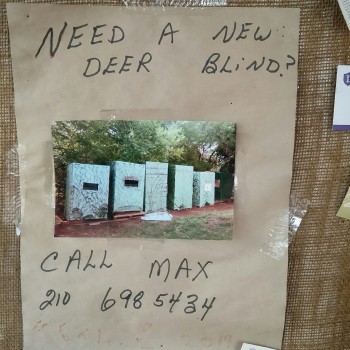 NEED A NEW
DEER BLIND?
CALL MAX
210 698 5434